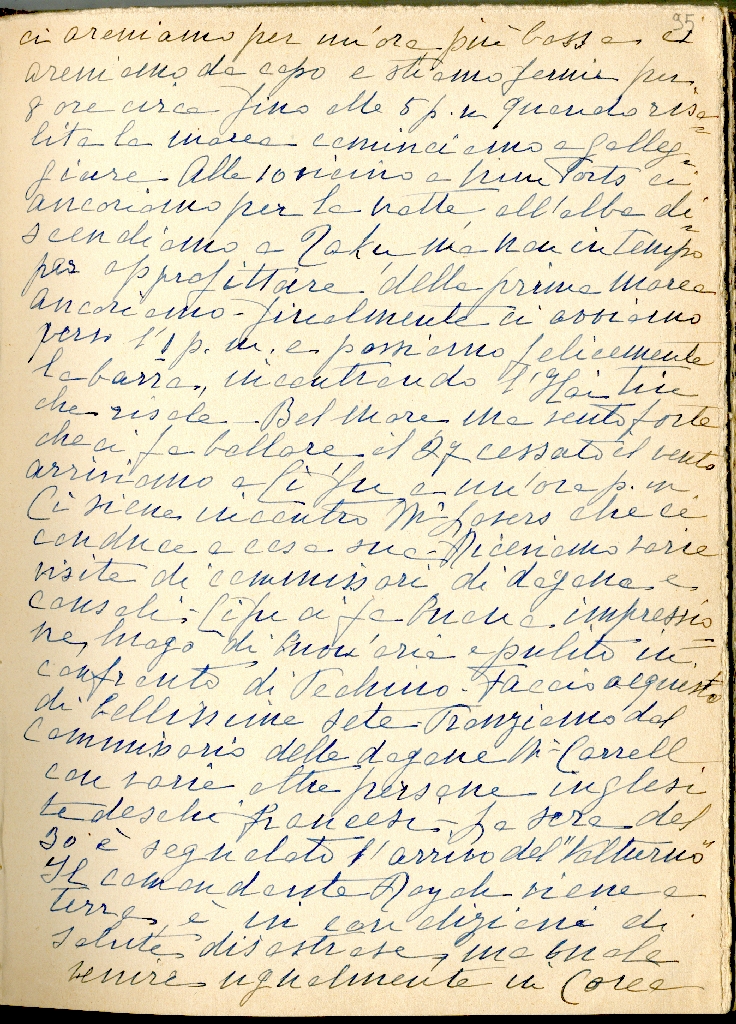 95
ci areniamo per un'ora più bassa ci
areniamo da capo e stiamo fermi per
8 ore circa fino alle 5 p. m quando risa=
lita la marea cominciamo a galleg=
giare Alle 10 vicino a ci
ancoriamo per la notte all'alba di=
scendiamo a Taku ma non in tempo
per approfittare della prima marea
ancoriamo - finalmente ci avviamo
verso l'1 p. m. e passiamo felicemente
la barra, incontrando l'
che risale - Bel mare ma vento forte
che ci fa ballare il 27 cessato il vento
arriviamo a Cifu a un'ora p. m.
Ci viene incontro Mr che ci
conduce a casa sua - Riceviamo varie
visite di commissari di dogana e
consoli - Cifu ci fa buona impressio=
ne, luogo di buon'aria e pulito in
confronto di Pechino - Faccio acquisto
di bellissime sete - Pranziamo dal
commissario delle dogane Mr Carrell
con varie altre persone inglesi
tedeschi francesi - La sera del
30 è segnalato l'arrivo del "Volturno"
Il comandante viene a
terra, è in condizioni di
salute disastrose, ma vuole
venire ugualmente in Corea